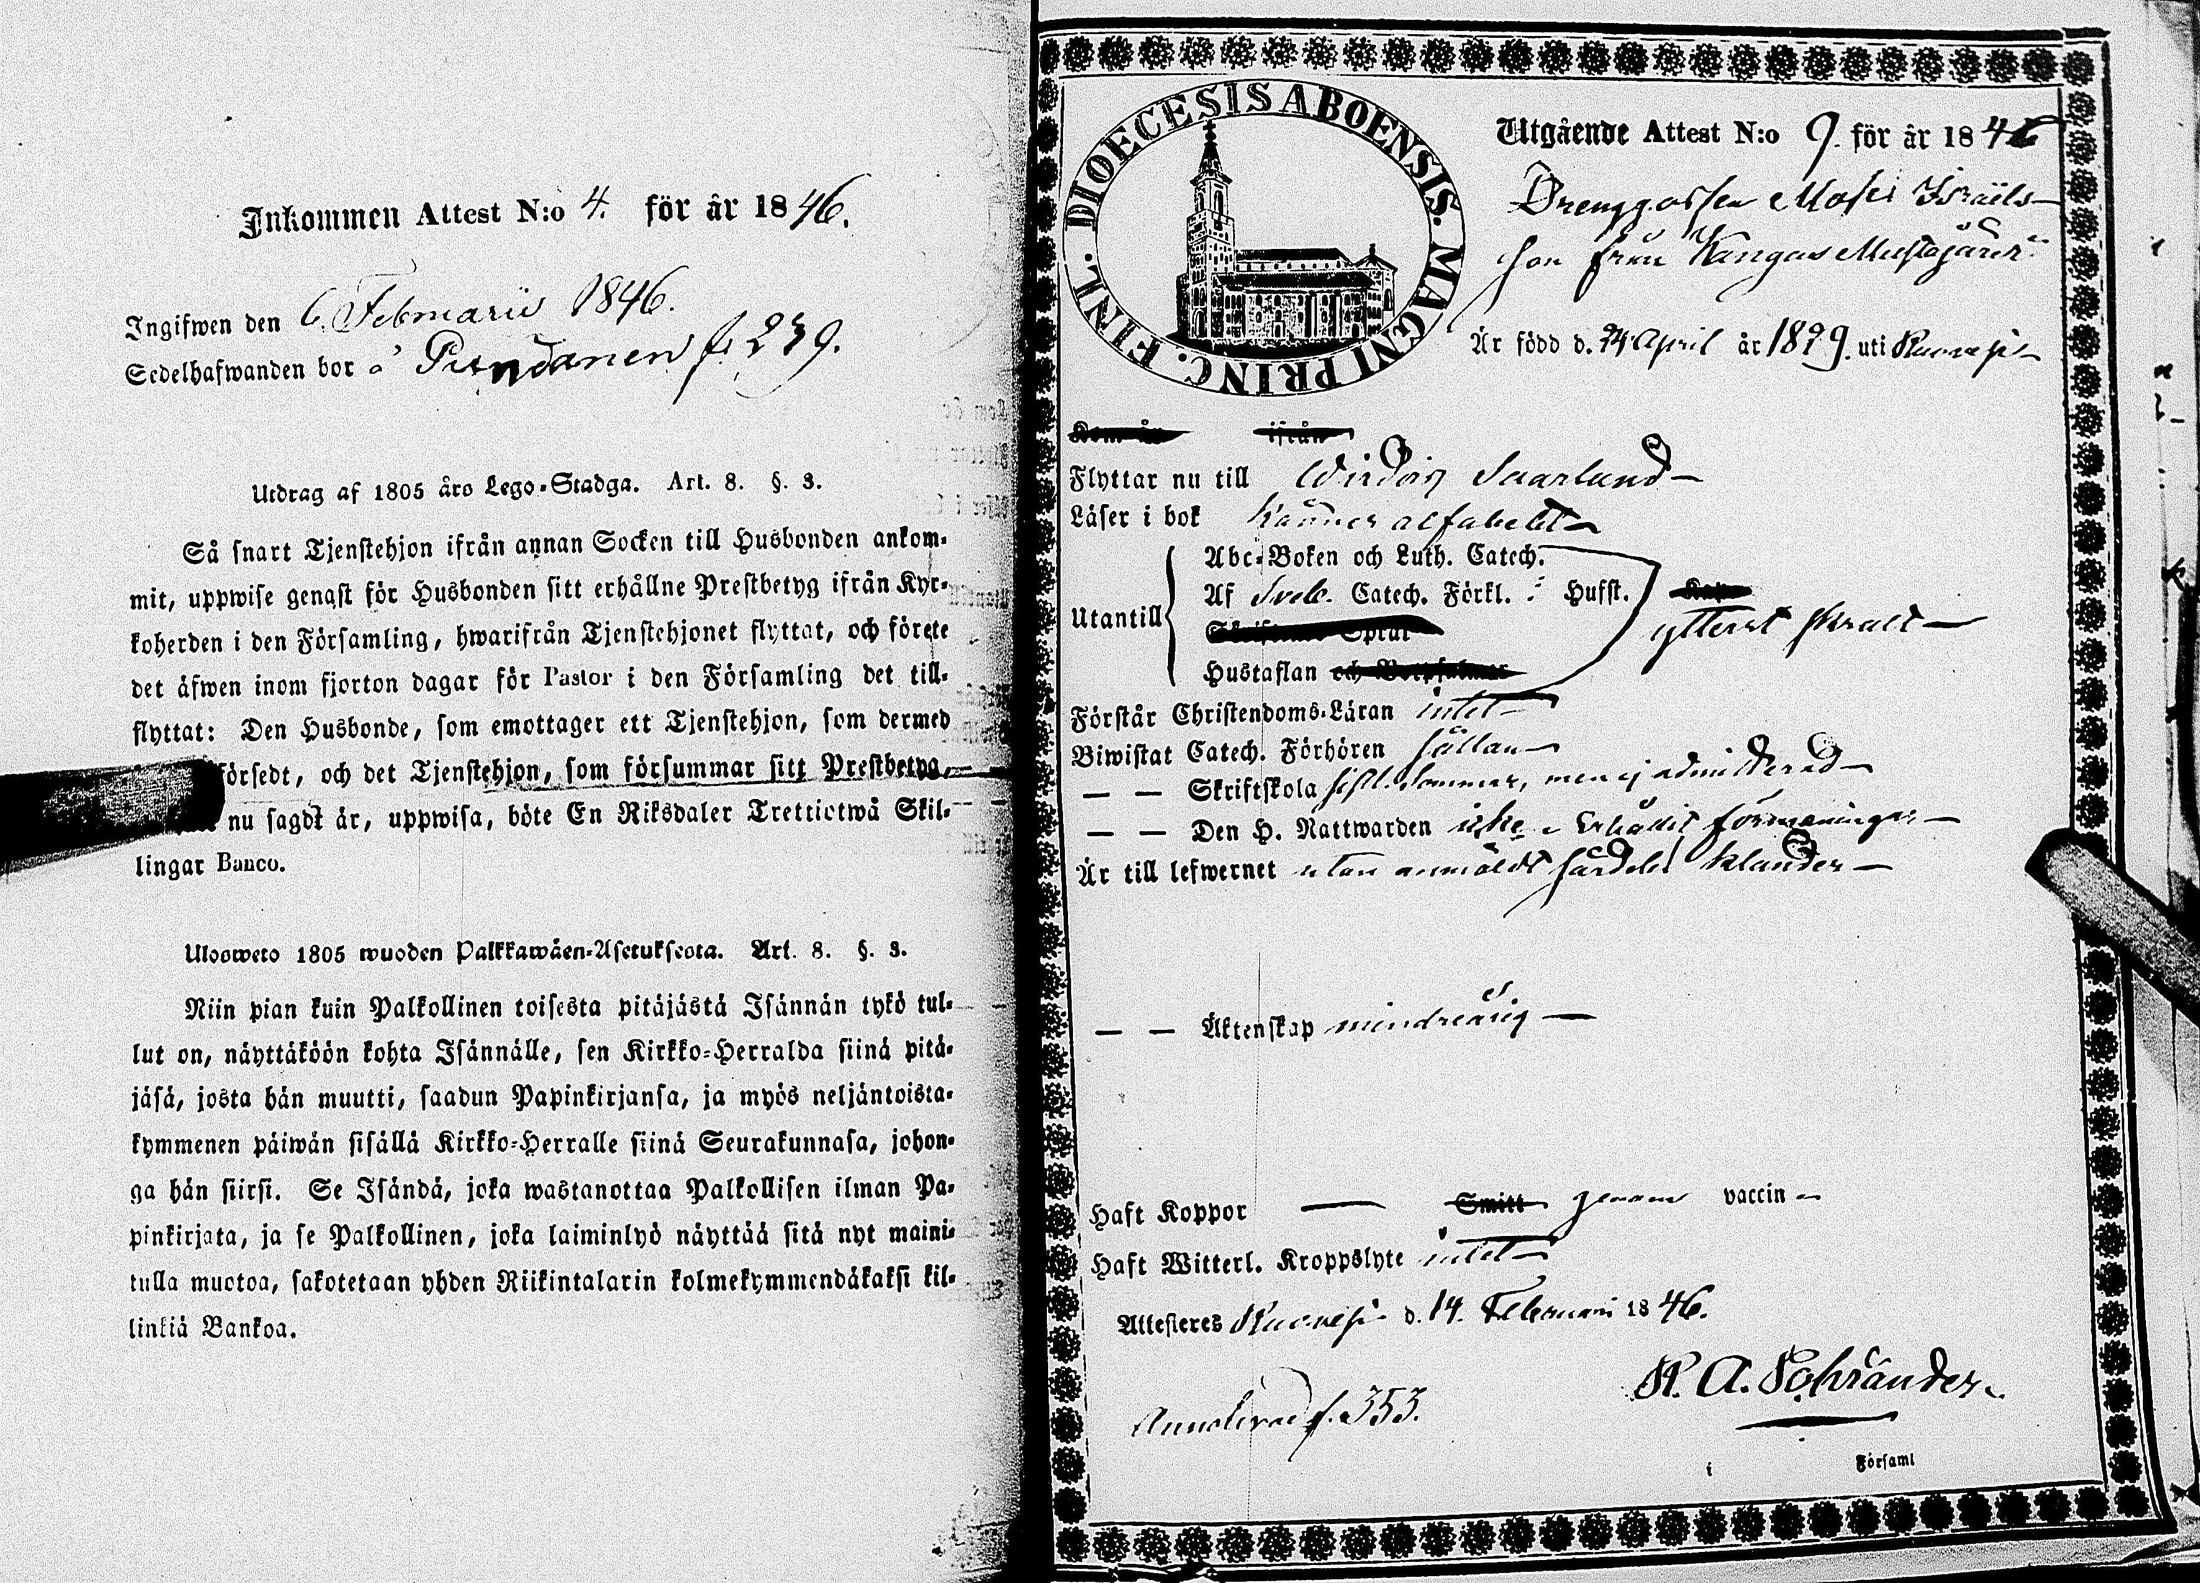 Inkommen Attest N:o 4. för år 1846.
Ingifwen den 6 Februarii 1846.
Sedelhafwanden bor å f. 239.
Utdrag af 1805 års Lego-Stadga. Art. 8. §. 3.
Så snart Tjenstehjon ifrån annan Socken till Husbonden ankom-
mit, uppwise genast för Husbonden sitt erhållne Prestbetyg ifrån Kyr-
koherden i den Församling, hwarifrån Tjenstehjonet flyttat, och förete
det äfwen inom fjorton dagar för Pastor i den Församling det till-
flyttat: Den Husbonde, som emottager ett Tjenstehjon, som dermed
försedt, och det Tjenstehjon, som försummar sitt Prestbetyg,
nu sagdt är, uppwisa, böte En Riksdaler Trettiotwå Skil-
lingar Banco.
Ulosweto 1805 wuoden Palkkawäen-Asetuksesta. Art. 8. §. 3.
Niin pian kuin Palkollinen toisesta pitäjästä Isännän tykö tul-
lut on, näyttäköön kohta Isännälle, sen Kirkko-Herralda siinä pitä-
jäsä, josta hän muutti, saadun Papinkirjansa, ja myös neljäntoista-
kymmenen päiwän sisällä Kirkko-Herralle siinä Seurakunnasa, johon-
ga hän siirsi. Se Isändä, joka wastanottaa Palkollisen ilman Pa-
pinkirjata, ja se Palkollinen, joka laiminlyö näyttää sitä nyt maini-
tulla muotoa, sakotetaan yhden Riikintalarin kolmekymmendäkaksi kil-
linkiä Bankoa.
DIOECESIS ABOENSIS. MAGNI PRINC. FINL.
Utgående Attest N:o 9. för år 1846
Drenggossen Moses Israëls-
son från Kangas Mustajärvi
Är född d. 24 April år 1829. uti Ruovesi
Kom år ifrån
Flyttar nu till Wirdois Saarlund
Läser i bok känner alfabetet
Utantill
Abc-Boken och Luth. Catech.
Af Sveb. Catech. Förkl. : Hufst.
Skriftenes Språk
Hustaflan och Botpsalmer
ytterst svalt
Förstår Christendoms-Läran intet
Biwistat Catech. Förhören sällan
— — Skriftskola sistl. Sommar, men ej admitterad
— — Den H. Nattwarden icke. Erhållit förmaningar
Är till lefwernet utan anmäldt särdeles klander
— — Äktenskap mindreårig
Haft Koppor — Smitt genom vaccin
Haft Witterl. Kroppslyte intet
Attesteres Ruovesi d. 14. Februari 1846.
K. A. Schränder
Annoterad f. 353.
i Församl